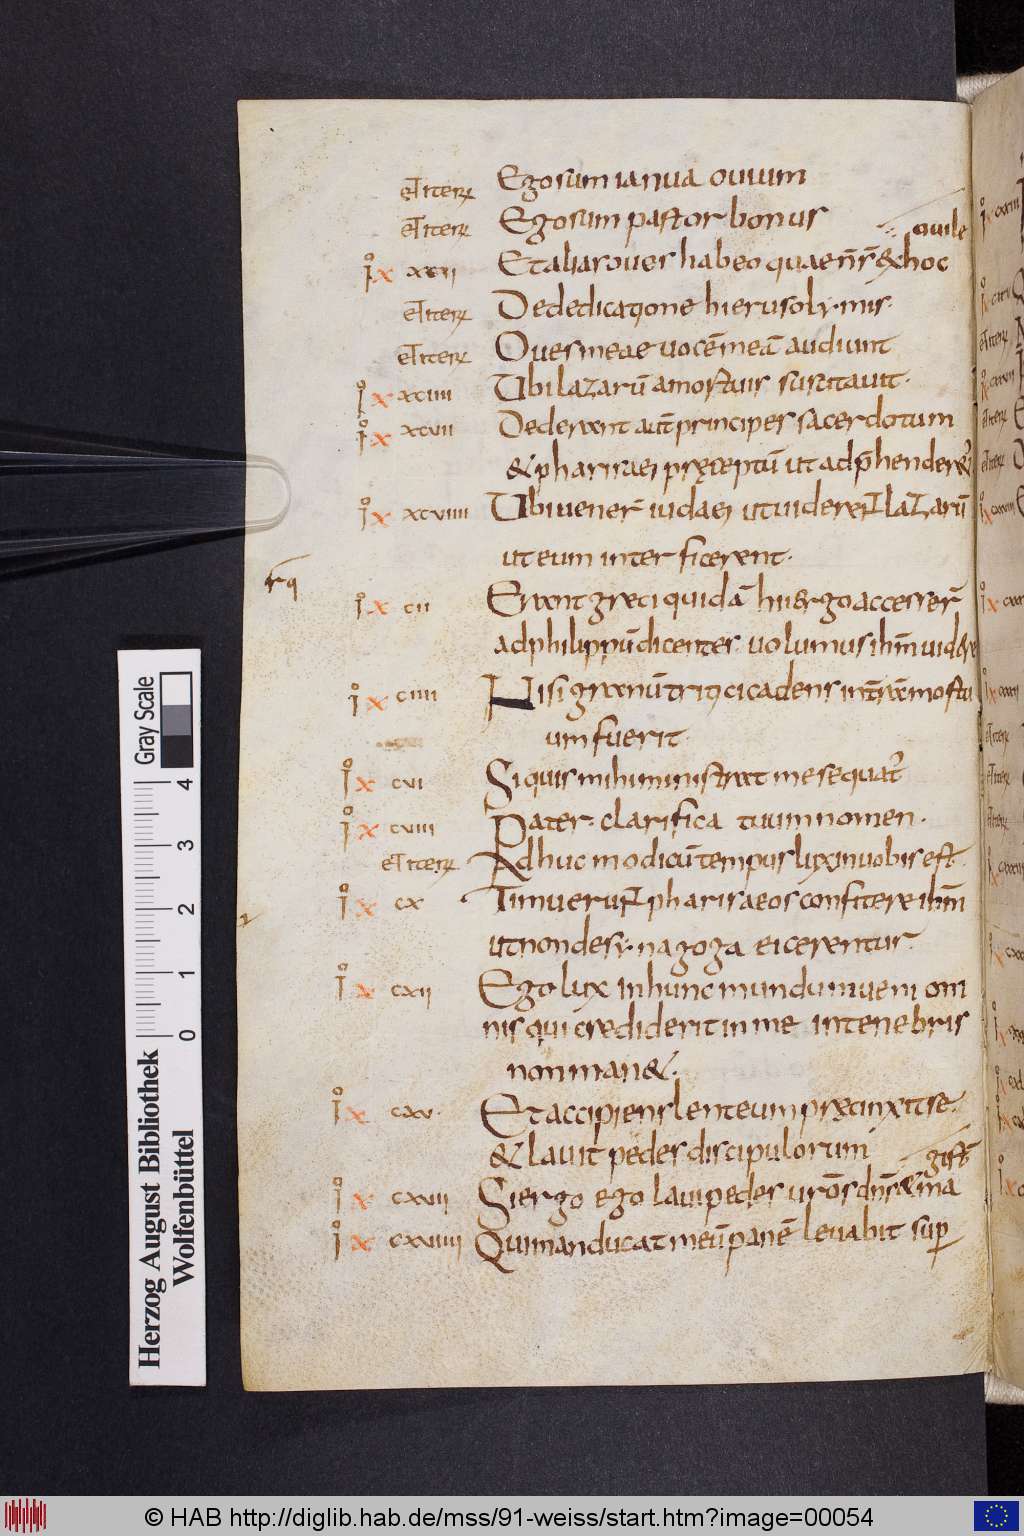 et iterũ Ego sum ianua ouium
et iterũ Ego sum pastor bonus
ouile
Io x xcii Et alias oues habeo quae nr̄s ex hoc
et iterũ De dedicatione hierusolymis.
et iterũ Oues meae uocē meā audiunt
Io x xciiii Ubi lazarū a mortuis suscitauit.
Io x xcvii Dederunt aut̄ principes sacerdotum
& pharisaei pręceptū ut adp̄hender&
Io x xcviiii Ubi uener̄ iudaei ut uiderent lazarū
ut eum interficerent.
rq
Io x cii Erant greci quidā hii ergo accesser̄
ad philippū dicentes uolumus ihm̄ uidere
Io x ciiii Nisi granū tritici cadens in terrā mortu
um fuerit
Io x cvi Si quis mihi ministrat me sequat᷑
Io x cviii Pater. clarifica tuum nomen.
et iterũ Adhuc modicū tempus lux in uobis est
Io x cx Timuerunt pharisaeos confitere ihm̄
ut non de synagoga eicerentur
Io x cxii Ego lux in hunc mundum ueni om
nis qui crediderit in me in tenebris
non man&.
Io x cxv. Et accipiens lenteum pręcinxit se.
& lauit pedes discipulorum
gist̄
Io x cxviii Si ergo ego laui pedes uros̄ dn̄s & ma
Io x cxxiiii Qui manducat meū panē leuabit sup
Gray Scale
4 3 2 1 0
Herzog August Bibliothek
Wolfenbüttel
© HAB http://diglib.hab.de/mss/91-weiss/start.htm?image=00054